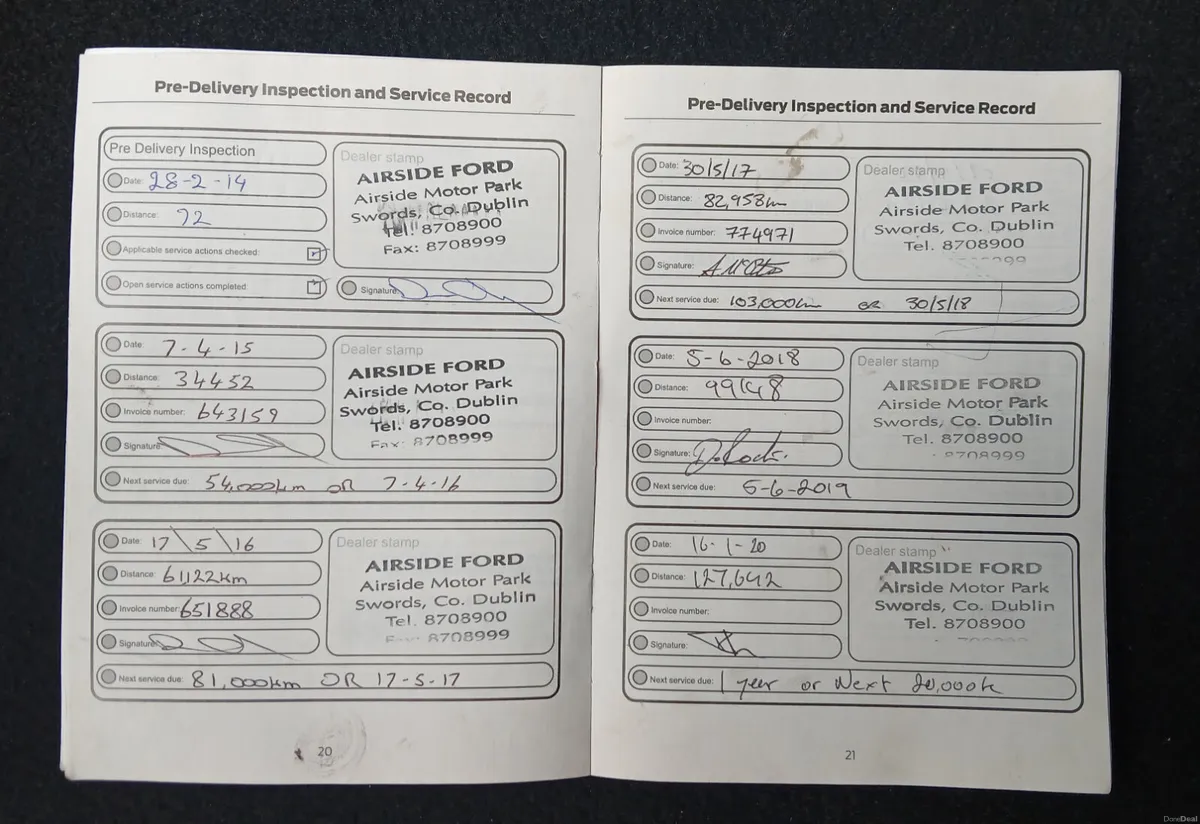 Pre-Delivery Inspection and Service Record
Pre Delivery Inspection
Date: 28-2-14
Distance: 72
Applicable service actions checked:
Open service actions completed:
Dealer stamp
AIRSIDE FORD
Airside Motor Park
Swords, Co. Dublin
Tel. 8708900
Fax: 8708999
Signature:
Date: 7-4-15
Distance: 34452
Invoice number: 643159
Signature:
Next service due: 54,000km OR 7-4-16
Dealer stamp
AIRSIDE FORD
Airside Motor Park
Swords, Co. Dublin
Tel. 8708900
Fax: 8708999
Date: 17\5\16
Distance: 61,122km
Invoice number: 651888
Signature:
Next service due: 81,000km OR 17-5-17
Dealer stamp
AIRSIDE FORD
Airside Motor Park
Swords, Co. Dublin
Tel. 8708900
8708999
20
Pre-Delivery Inspection and Service Record
Date: 30/5/17
Distance: 82,958km
Invoice number: 774971
Signature:
Next service due: 103,000km OR 30/5/18
Dealer stamp
AIRSIDE FORD
Airside Motor Park
Swords, Co. Dublin
Tel. 8708900
Date: 5-6-2018
Distance: 99148
Invoice number:
Signature:
Next service due: 5-6-2019
Dealer stamp
AIRSIDE FORD
Airside Motor Park
Swords, Co. Dublin
Tel. 8708900
8708999
Date: 16-1-20
Distance: 127,642
Invoice number:
Signature:
Next service due: 1 year or Next 20,000k
Dealer stamp
AIRSIDE FORD
Airside Motor Park
Swords, Co. Dublin
Tel. 8708900
21
DoneDeal